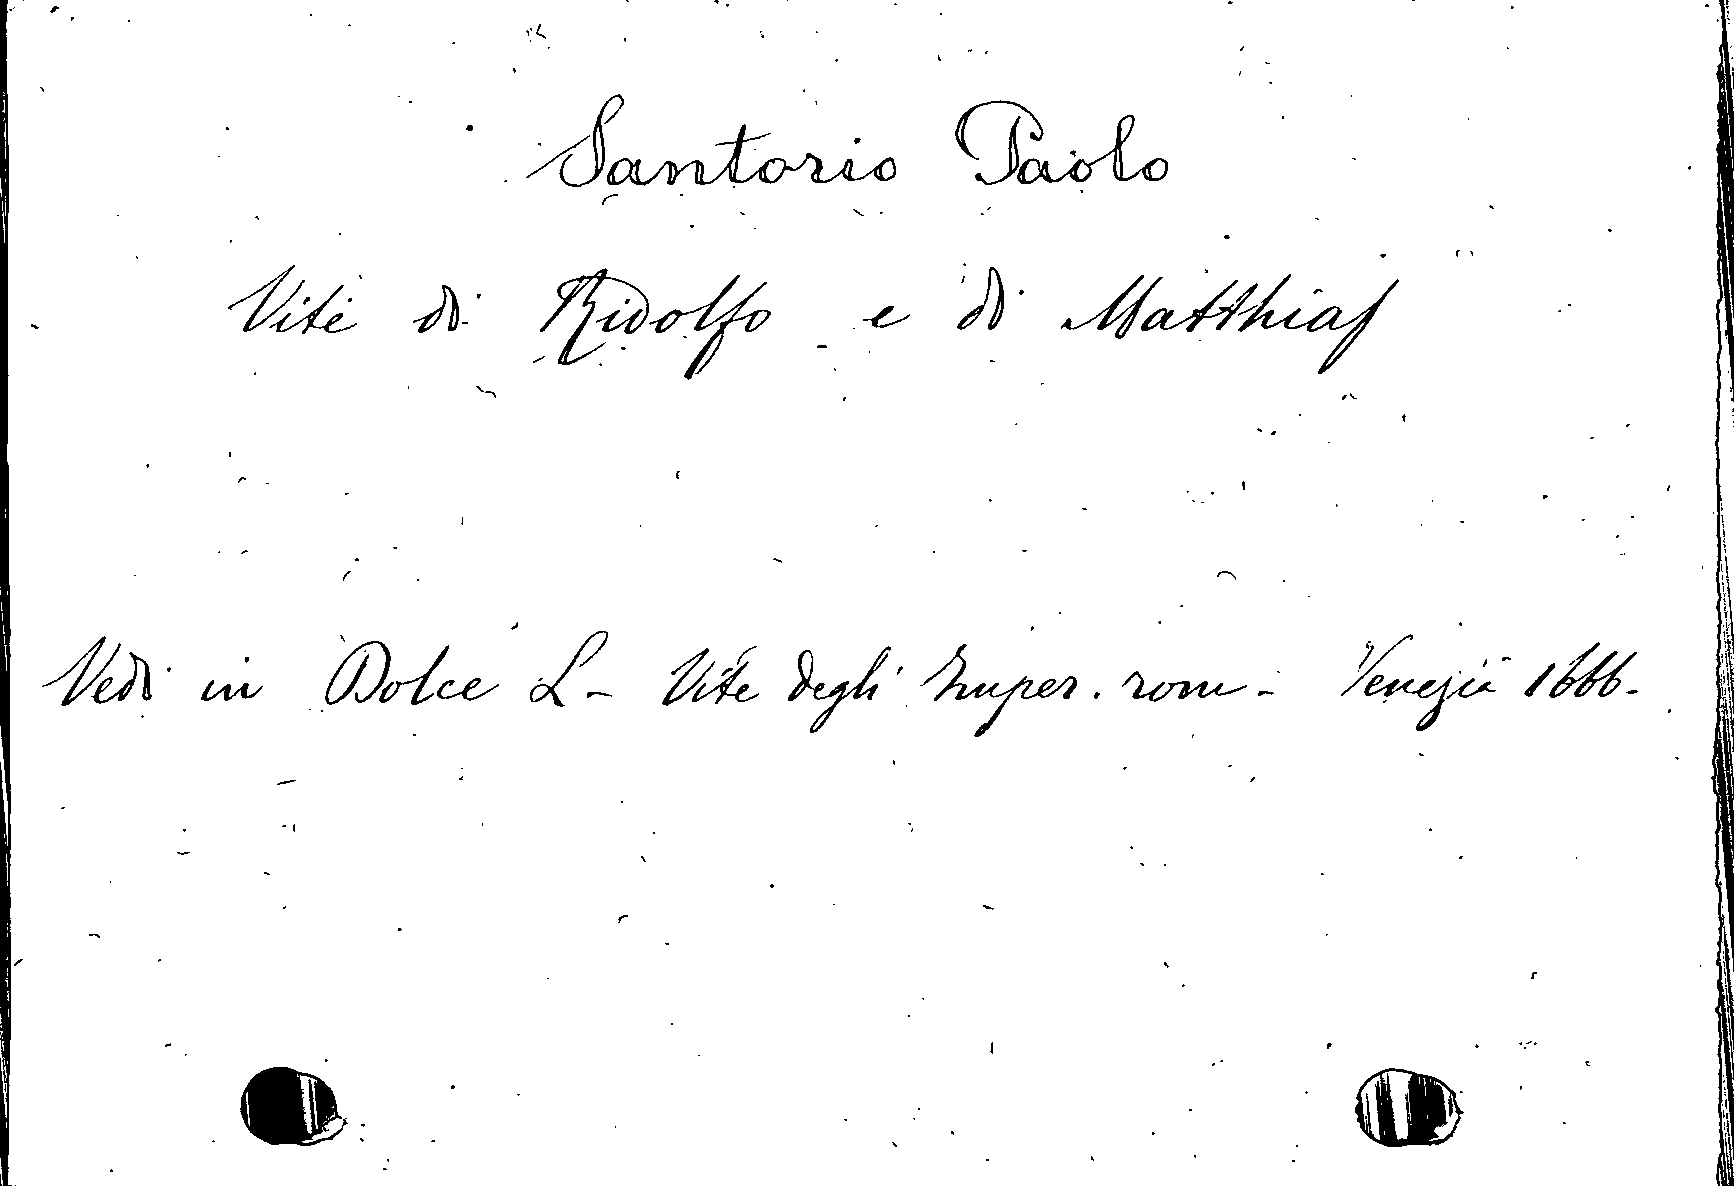 Santorio Paolo
Vite di Ridolfo e di Matthias
Vedi in Dolce L- Vite degli Imper. rom- Venezia 1666-